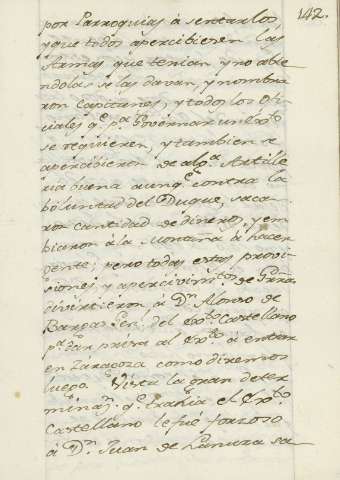 142.
por Parroquias à sentarlos,
y que todos apercibiesen las
Armas que tenian, y no abien
dolas se las davan, y nombra
ron Capitanes, y todos los Ofi-
ciales q.e p.a Governar un Ex.to
se requieren, y tambien se
apercibieron de alg.a Artille
ria buena aunq.e contra la
boluntad del Duque, saca-
ron cantidad de dineros, y em-
biaron à la Montaña à hacer
gente; pero todas estas provi-
siones, y apercivim.tos de
divirtieron à D.n Alonso de
Bargas Gen.l del Ex.to Castellano
p.a dar priesa al Ex.to à entrar
en Zaragoza como diremos
luego. Vista la gran deter
minaz.n q.e trahia el Ex.to
Castellano le fue forzoso
à D.n Juan de Lanuza sa-